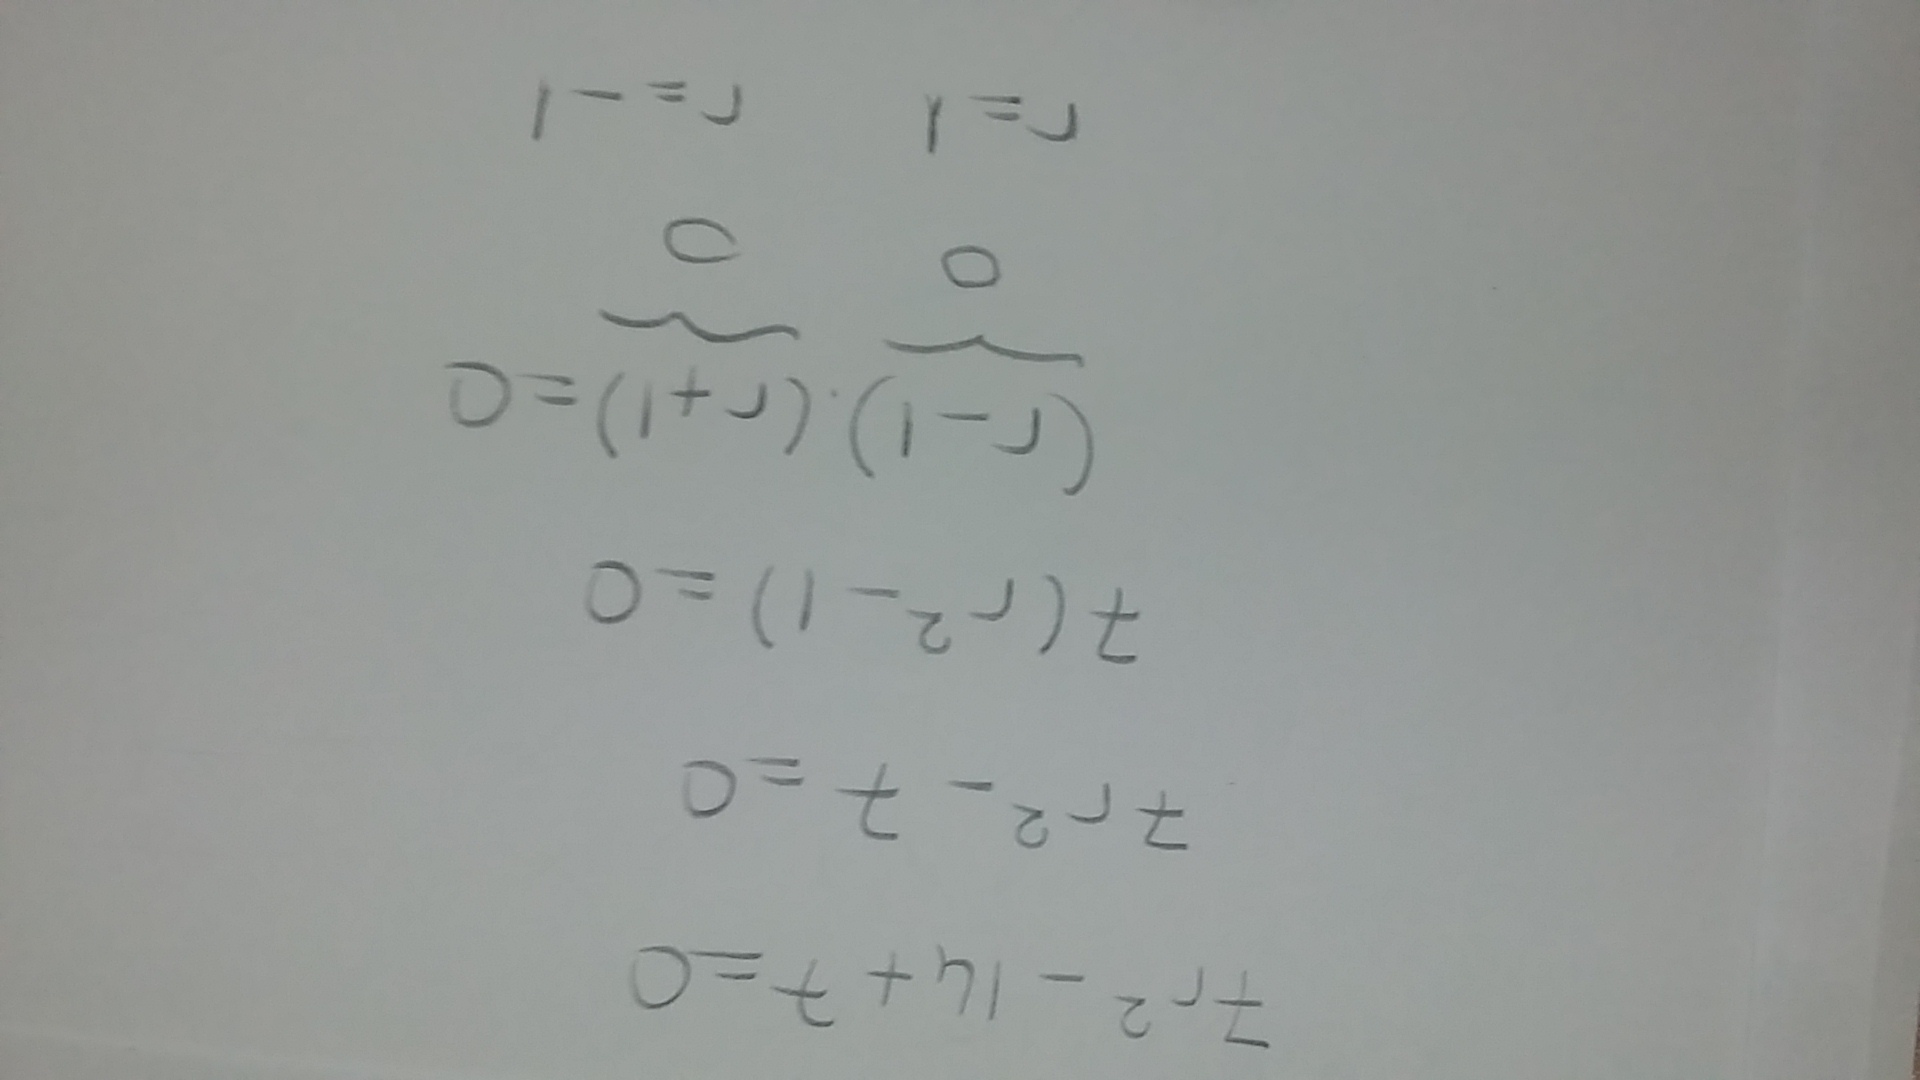 7r² - 14 + 7 = 0
7r² - 7 = 0
7(r² - 1) = 0
(r - 1) · (r + 1) = 0
0 0
r = 1 r = -1